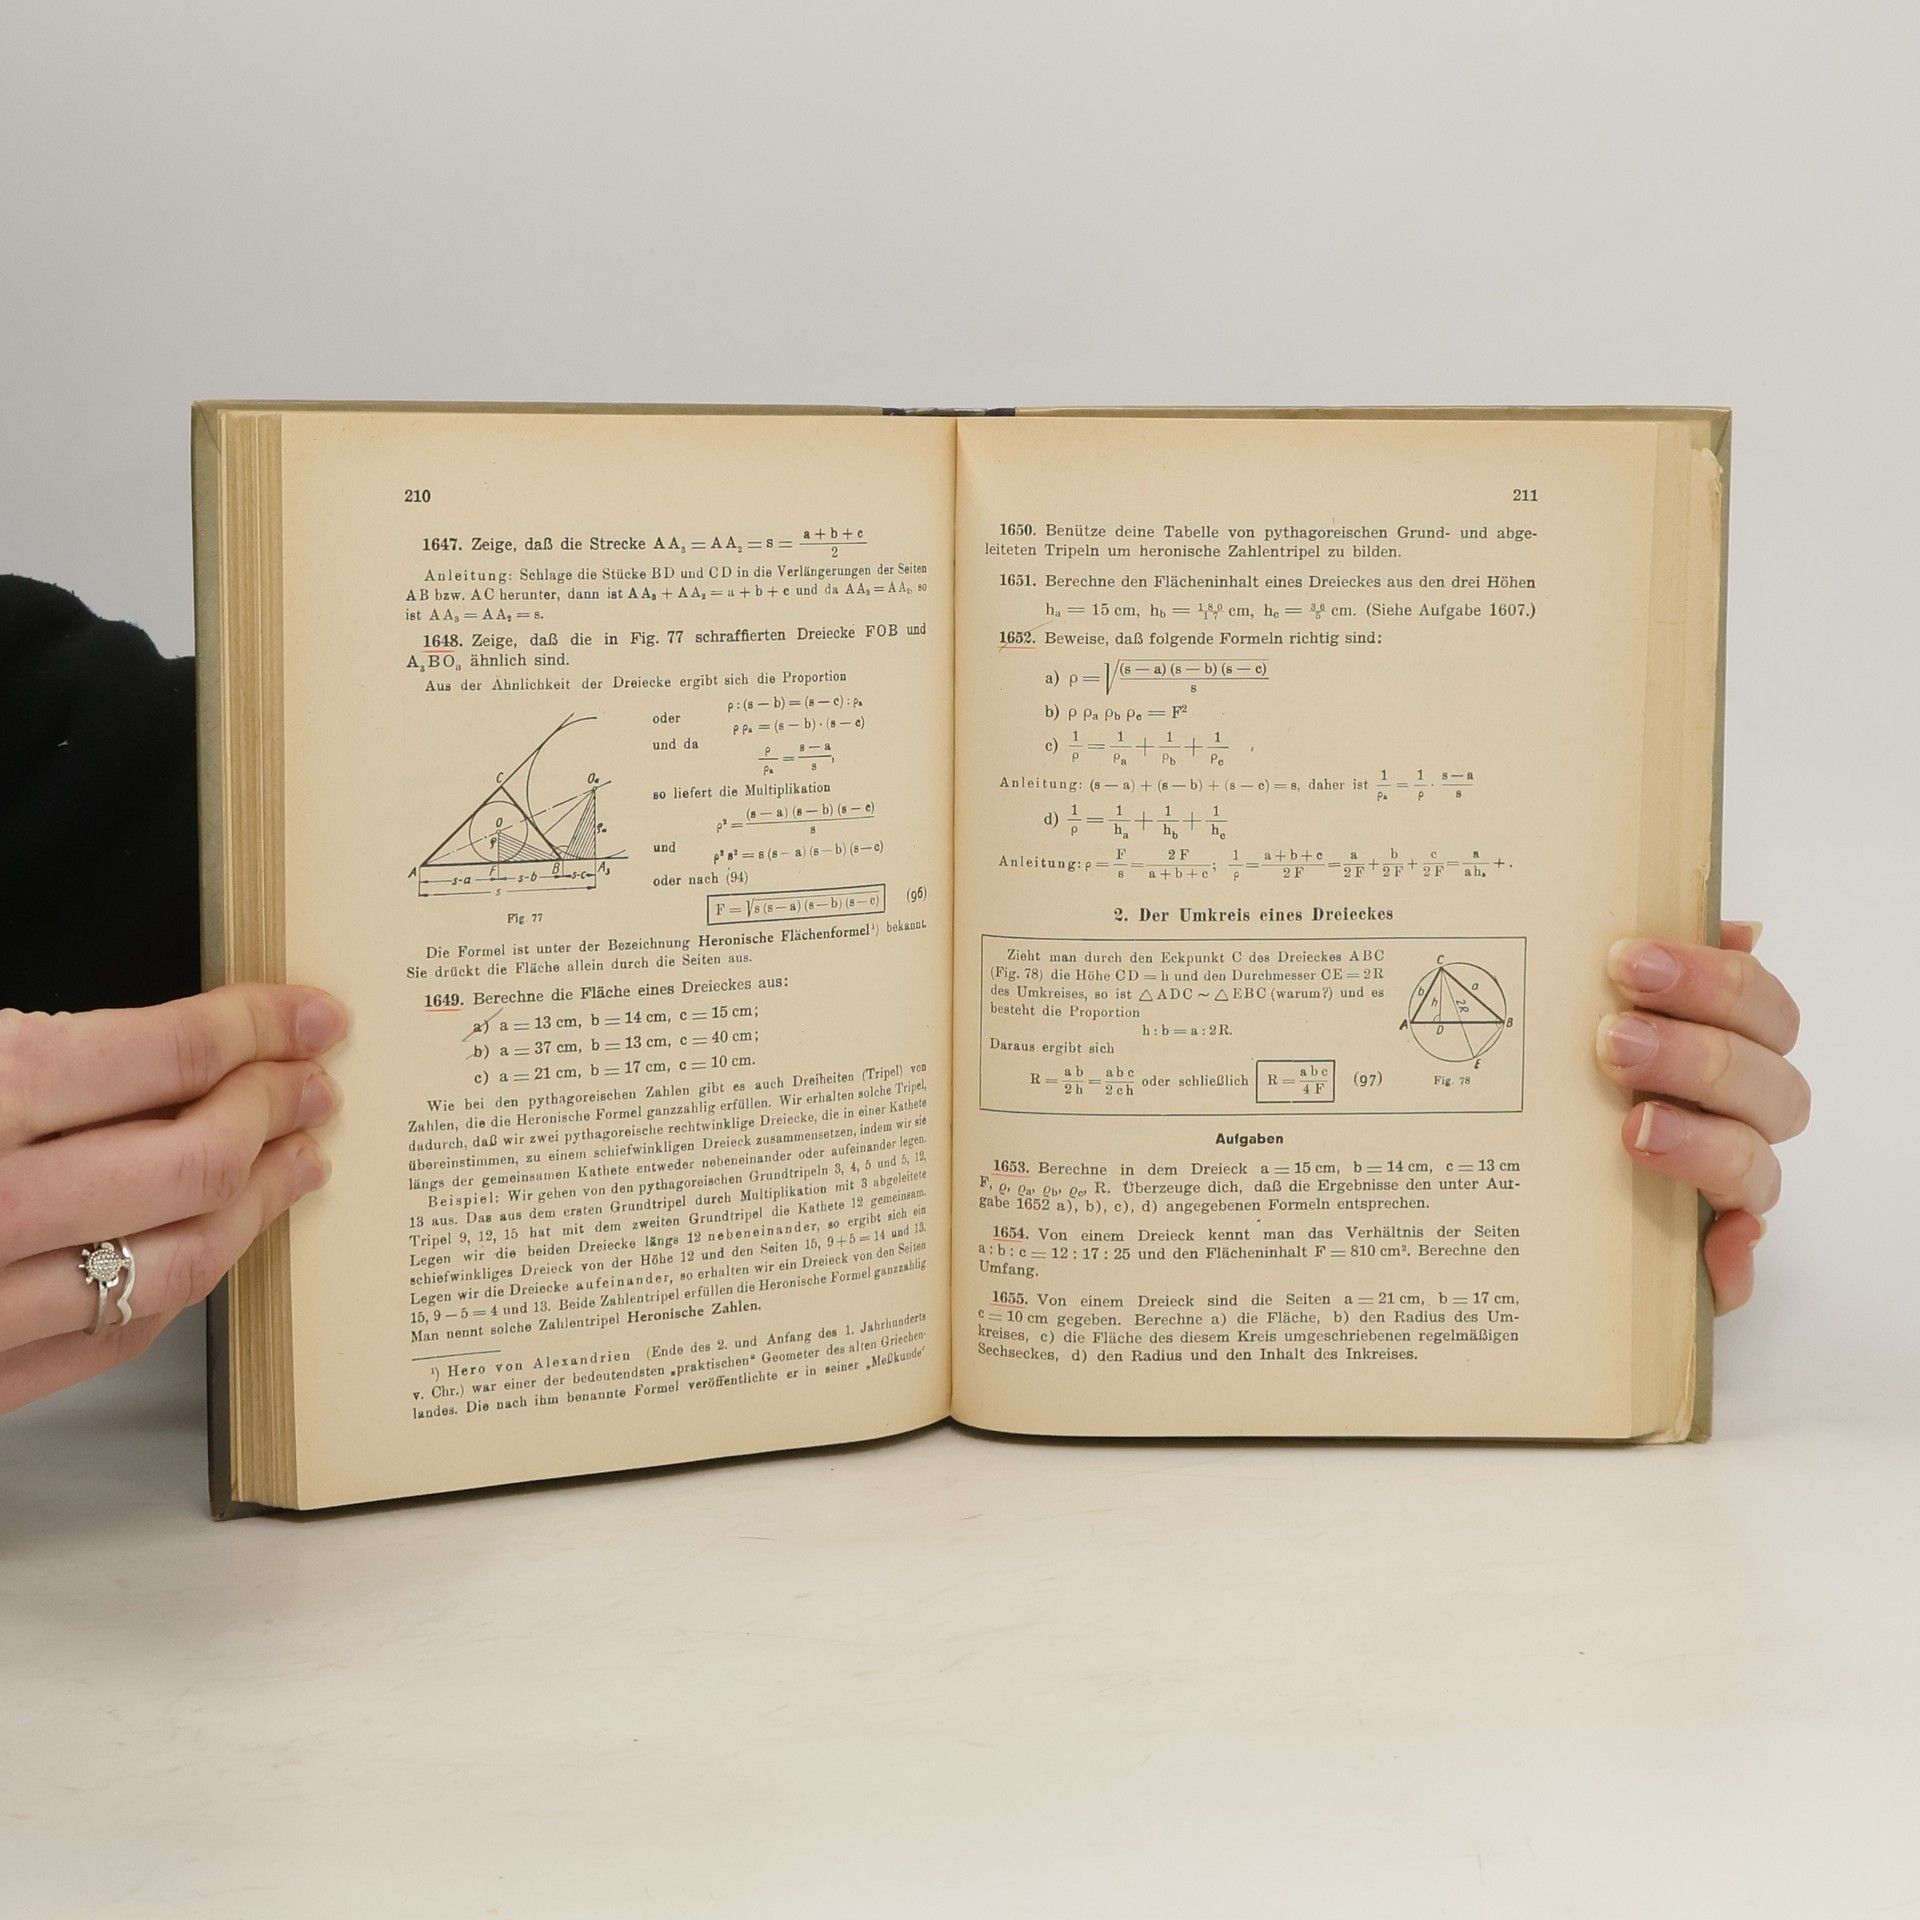 210
1647. Zeige, daß die Strecke AA₃ = AA₂ = s = (a + b + c)/2
Anleitung: Schlage die Stücke BD und CD in die Verlängerungen der Seiten
AB bzw. AC herunter, dann ist AA₃ + AA₂ = a + b + c und da AA₃ = AA₂, so
ist AA₃ = AA₂ = s.
1648. Zeige, daß die in Fig. 77 schraffierten Dreiecke FOB und
A₃BOₐ ähnlich sind.
Aus der Ähnlichkeit der Dreiecke ergibt sich die Proportion
ρ : (s — b) = (s — c) : ρₐ
oder
ρ ρₐ = (s — b) · (s — c)
und da
ρ/ρₐ = (s — a)/s,
so liefert die Multiplikation
ρ² = (s — a) (s — b) (s — c)/s
und
ρ² s² = s (s — a) (s — b) (s — c)
oder nach (94)
F = √s (s — a) (s — b) (s — c) (96)
C Oₐ
O
ρ ρₐ
A F B A₃
s-a s-b s-c
s
Fig. 77
Die Formel ist unter der Bezeichnung Heronische Flächenformel¹) bekannt.
Sie drückt die Fläche allein durch die Seiten aus.
1649. Berechne die Fläche eines Dreieckes aus:
a) a = 13 cm, b = 14 cm, c = 15 cm;
b) a = 37 cm, b = 13 cm, c = 40 cm;
c) a = 21 cm, b = 17 cm, c = 10 cm.
Wie bei den pythagoreischen Zahlen gibt es auch Dreiheiten (Tripel) von
Zahlen, die die Heronische Formel ganzzahlig erfüllen. Wir erhalten solche Tripel,
dadurch, daß wir zwei pythagoreische rechtwinklige Dreiecke, die in einer Kathete
übereinstimmen, zu einem schiefwinkligen Dreieck zusammensetzen, indem wir sie
längs der gemeinsamen Kathete entweder nebeneinander oder aufeinander legen.
Beispiel: Wir gehen von den pythagoreischen Grundtripeln 3, 4, 5 und 5, 12,
13 aus. Das aus dem ersten Grundtripel durch Multiplikation mit 3 abgeleitete
Tripel 9, 12, 15 hat mit dem zweiten Grundtripel die Kathete 12 gemeinsam.
Legen wir die beiden Dreiecke längs 12 nebeneinander, so ergibt sich ein
schiefwinkliges Dreieck von der Höhe 12 und den Seiten 15, 9 + 5 = 14 und 13.
Legen wir die Dreiecke aufeinander, so erhalten wir ein Dreieck von den Seiten
15, 9 — 5 = 4 und 13. Beide Zahlentripel erfüllen die Heronische Formel ganzzahlig
Man nennt solche Zahlentripel Heronische Zahlen.
¹) Hero von Alexandrien (Ende des 2. und Anfang des 1. Jahrhunderts
v. Chr.) war einer der bedeutendsten „praktischen“ Geometer des alten Griechen-
landes. Die nach ihm benannte Formel veröffentlichte er in seiner „Meßkunde“
211
1650. Benütze deine Tabelle von pythagoreischen Grund- und abge-
leiteten Tripeln um heronische Zahlentripel zu bilden.
1651. Berechne den Flächeninhalt eines Dreieckes aus den drei Höhen
hₐ = 15 cm, h_b = 180/17 cm, h_c = 36/5 cm. (Siehe Aufgabe 1607.)
1652. Beweise, daß folgende Formeln richtig sind:
a) ρ = √((s — a) (s — b) (s — c)/s)
b) ρ ρₐ ρ_b ρ_c = F²
c) 1/ρ = 1/ρₐ + 1/ρ_b + 1/ρ_c
Anleitung: (s — a) + (s — b) + (s — c) = s, daher ist 1/ρₐ = 1/ρ · (s — a)/s
d) 1/ρ = 1/hₐ + 1/h_b + 1/h_c
Anleitung: ρ = F/s = 2F/(a + b + c); 1/ρ = (a + b + c)/2F = a/2F + b/2F + c/2F = a/ahₐ + .
2. Der Umkreis eines Dreieckes
Zieht man durch den Eckpunkt C des Dreieckes ABC
(Fig. 78) die Höhe CD = h und den Durchmesser CE = 2R
des Umkreises, so ist △ ADC ~ △ EBC (warum?) und es
besteht die Proportion
h : b = a : 2R.
Daraus ergibt sich
R = ab/2h = abc/2ch oder schließlich R = abc/4F (97)
C
b h 2R a
A D B
E
Fig. 78
Aufgaben
1653. Berechne in dem Dreieck a = 15 cm, b = 14 cm, c = 13 cm
F, ρ, ρₐ, ρ_b, ρ_c, R. Überzeuge dich, daß die Ergebnisse den unter Auf-
gabe 1652 a), b), c), d) angegebenen Formeln entsprechen.
1654. Von einem Dreieck kennt man das Verhältnis der Seiten
a : b : c = 12 : 17 : 25 und den Flächeninhalt F = 810 cm². Berechne den
Umfang.
1655. Von einem Dreieck sind die Seiten a = 21 cm, b = 17 cm,
c = 10 cm gegeben. Berechne a) die Fläche, b) den Radius des Um-
kreises, c) die Fläche des diesem Kreis umgeschriebenen regelmäßigen
Sechseckes, d) den Radius und den Inhalt des Inkreises.